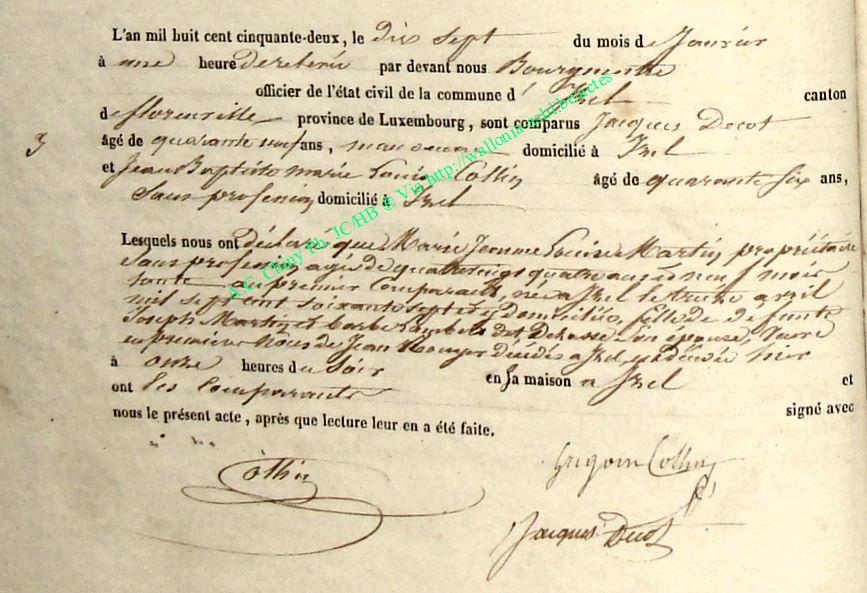 L'an mil huit cent cinquante-deux, le dix sept du mois de Janvier
à une heure de relevée par devant nous Bourgmestre
officier de l'état civil de la commune d' Izel canton
de florenville province de Luxembourg, sont comparus Jacques Docot
3 âgé de quarante neuf ans, domicilié à Izel
et Jean Baptiste marie Louis Collin âgé de quarante six ans,
Sans profession domicilié à Izel
Lesquels nous ont déclaré que Marie Jeanne Louise Martin propriétaire
Sans profession agée de quatrevingt quatre ans et neuf mois
tante au premier comparant, née a Izel le treize avril
mil sept cent soixante sept et y domiciliée, fille de defunts
Joseph Martin et barbe Lambert dit Dehasse Son épouse, Veuve
en premieres Nôces de Jean décédé a Izel, est décédée hier
à onze heures du Soir en sa maison a Izel et
ont les comparants signé avec
nous le présent acte, après que lecture leur en a été faite.
Collin
Grégoire Collin
Jacques Docot
A.C. Chiny Ph. JC/HB © Via http://wallonia.asbl.be/actes